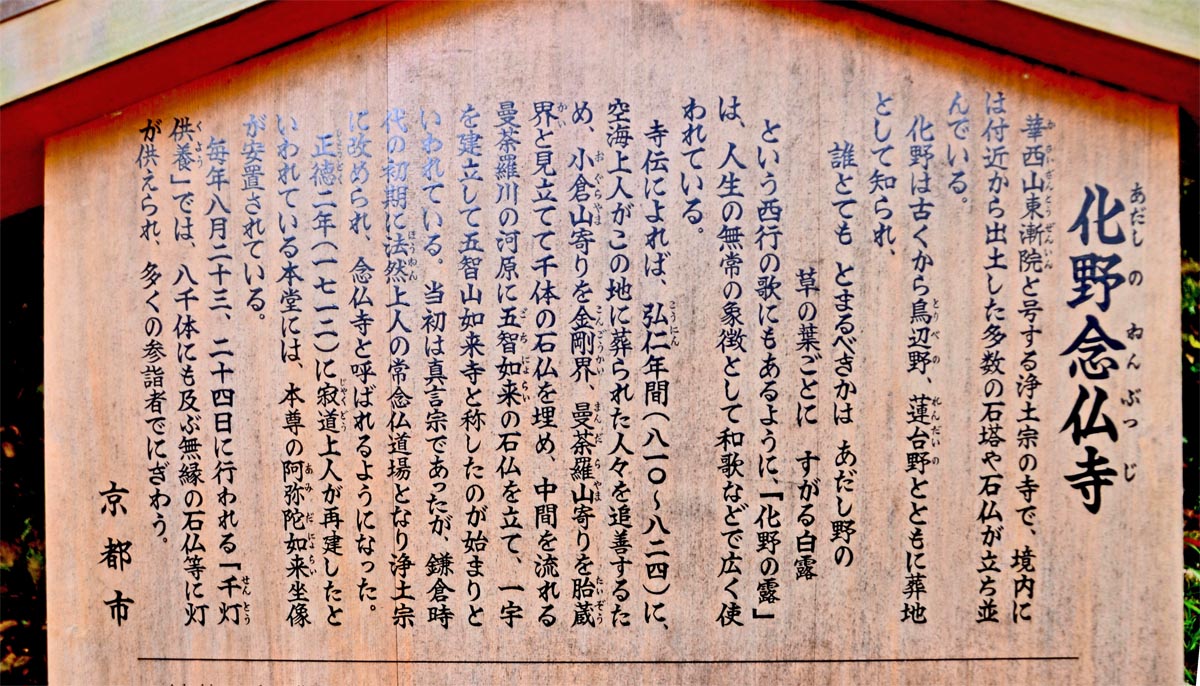 化野念仏寺
華西山東漸院と号する浄土宗の寺で、境内に
は付近から出土した多数の石塔や石仏が立ち並
んでいる。
化野は古くから鳥辺野、蓮台野とともに葬地
として知られ、
誰とても とまるべきかは あだし野の
草の葉ごとに すがる白露
という西行の歌にもあるように、「化野の露」
は、人生の無常の象徴として和歌などで広く使
われている。
寺伝によれば、弘仁年間(八一〇〜八二四)に、
空海上人がこの地に葬られた人々を追善するた
め、小倉山寄りを金剛界、曼荼羅山寄りを胎蔵
界と見立てて千体の石仏を埋め、中間を流れる
曼荼羅川の河原に五智如来の石仏を立て、一宇
を建立して五智山如来寺と称したのが始まりと
いわれている。当初は真言宗であったが、鎌倉時
代の初期に法然上人の常念仏道場となり浄土宗
に改められ、念仏寺と呼ばれるようになった。
正徳二年(一七一二)に寂道上人が再建したと
いわれている本堂には、本尊の阿弥陀如来坐像
が安置されている。
毎年八月二十三、二十四日に行われる「千灯
供養」では、八千体にも及ぶ無縁の石仏等に灯
が供えられ、多くの参詣者でにぎわう。
京都市